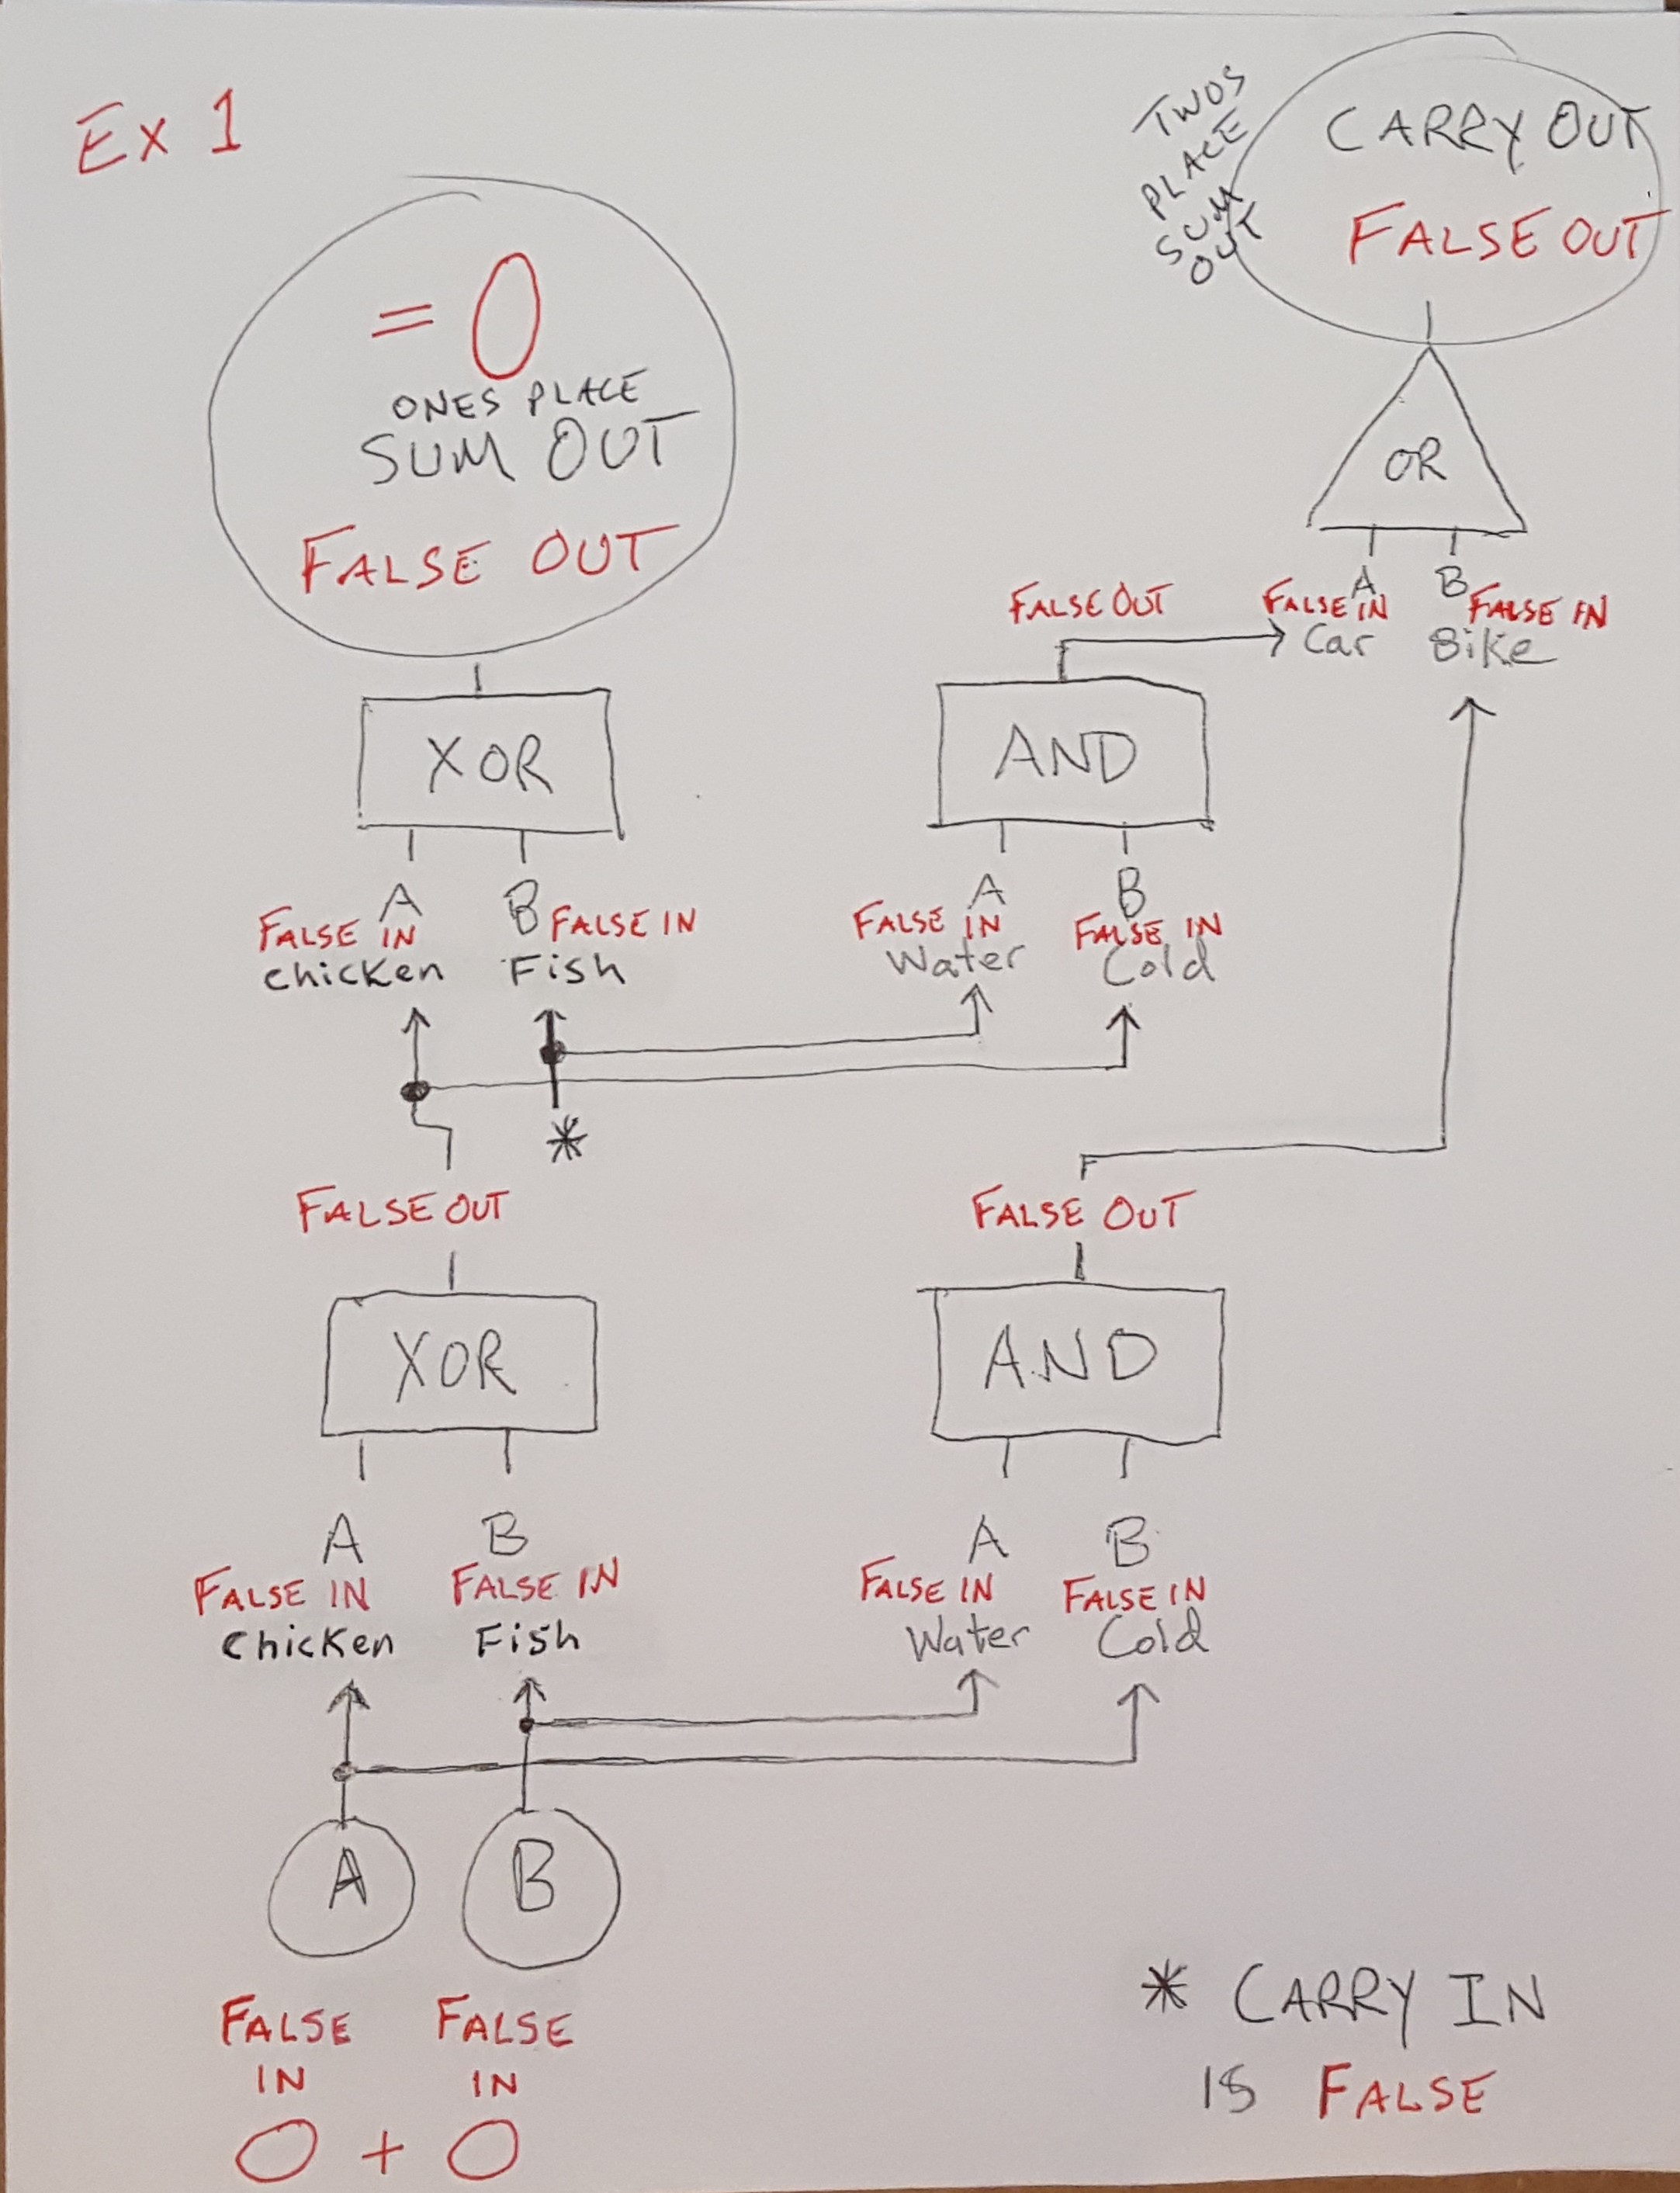 Ex 1
TWOS
PLACE
SUM
OUT
CARRY OUT
FALSE OUT
= 0
ONES PLACE
SUM OUT
FALSE OUT
OR
A B
FALSE OUT FALSE IN FALSE IN
Car Bike
XOR AND
A B A B
FALSE IN FALSE IN FALSE IN FALSE IN
chicken Fish Water Cold
*
FALSE OUT FALSE OUT
XOR AND
A B A B
FALSE IN FALSE IN FALSE IN FALSE IN
Chicken Fish Water Cold
A B
FALSE FALSE
IN IN
0 + 0
* CARRY IN
IS FALSE